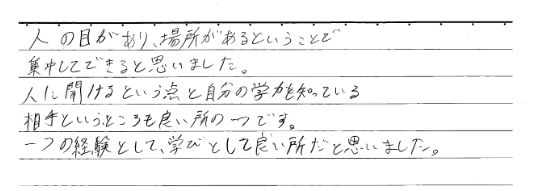 人の目があり、場所があるということで
集中してできると思いました。
人に聞けるという点と自分の学力を知っている
相手というところも良い所の一つです。
一つの経験として、学びとして良い所だと思いました。